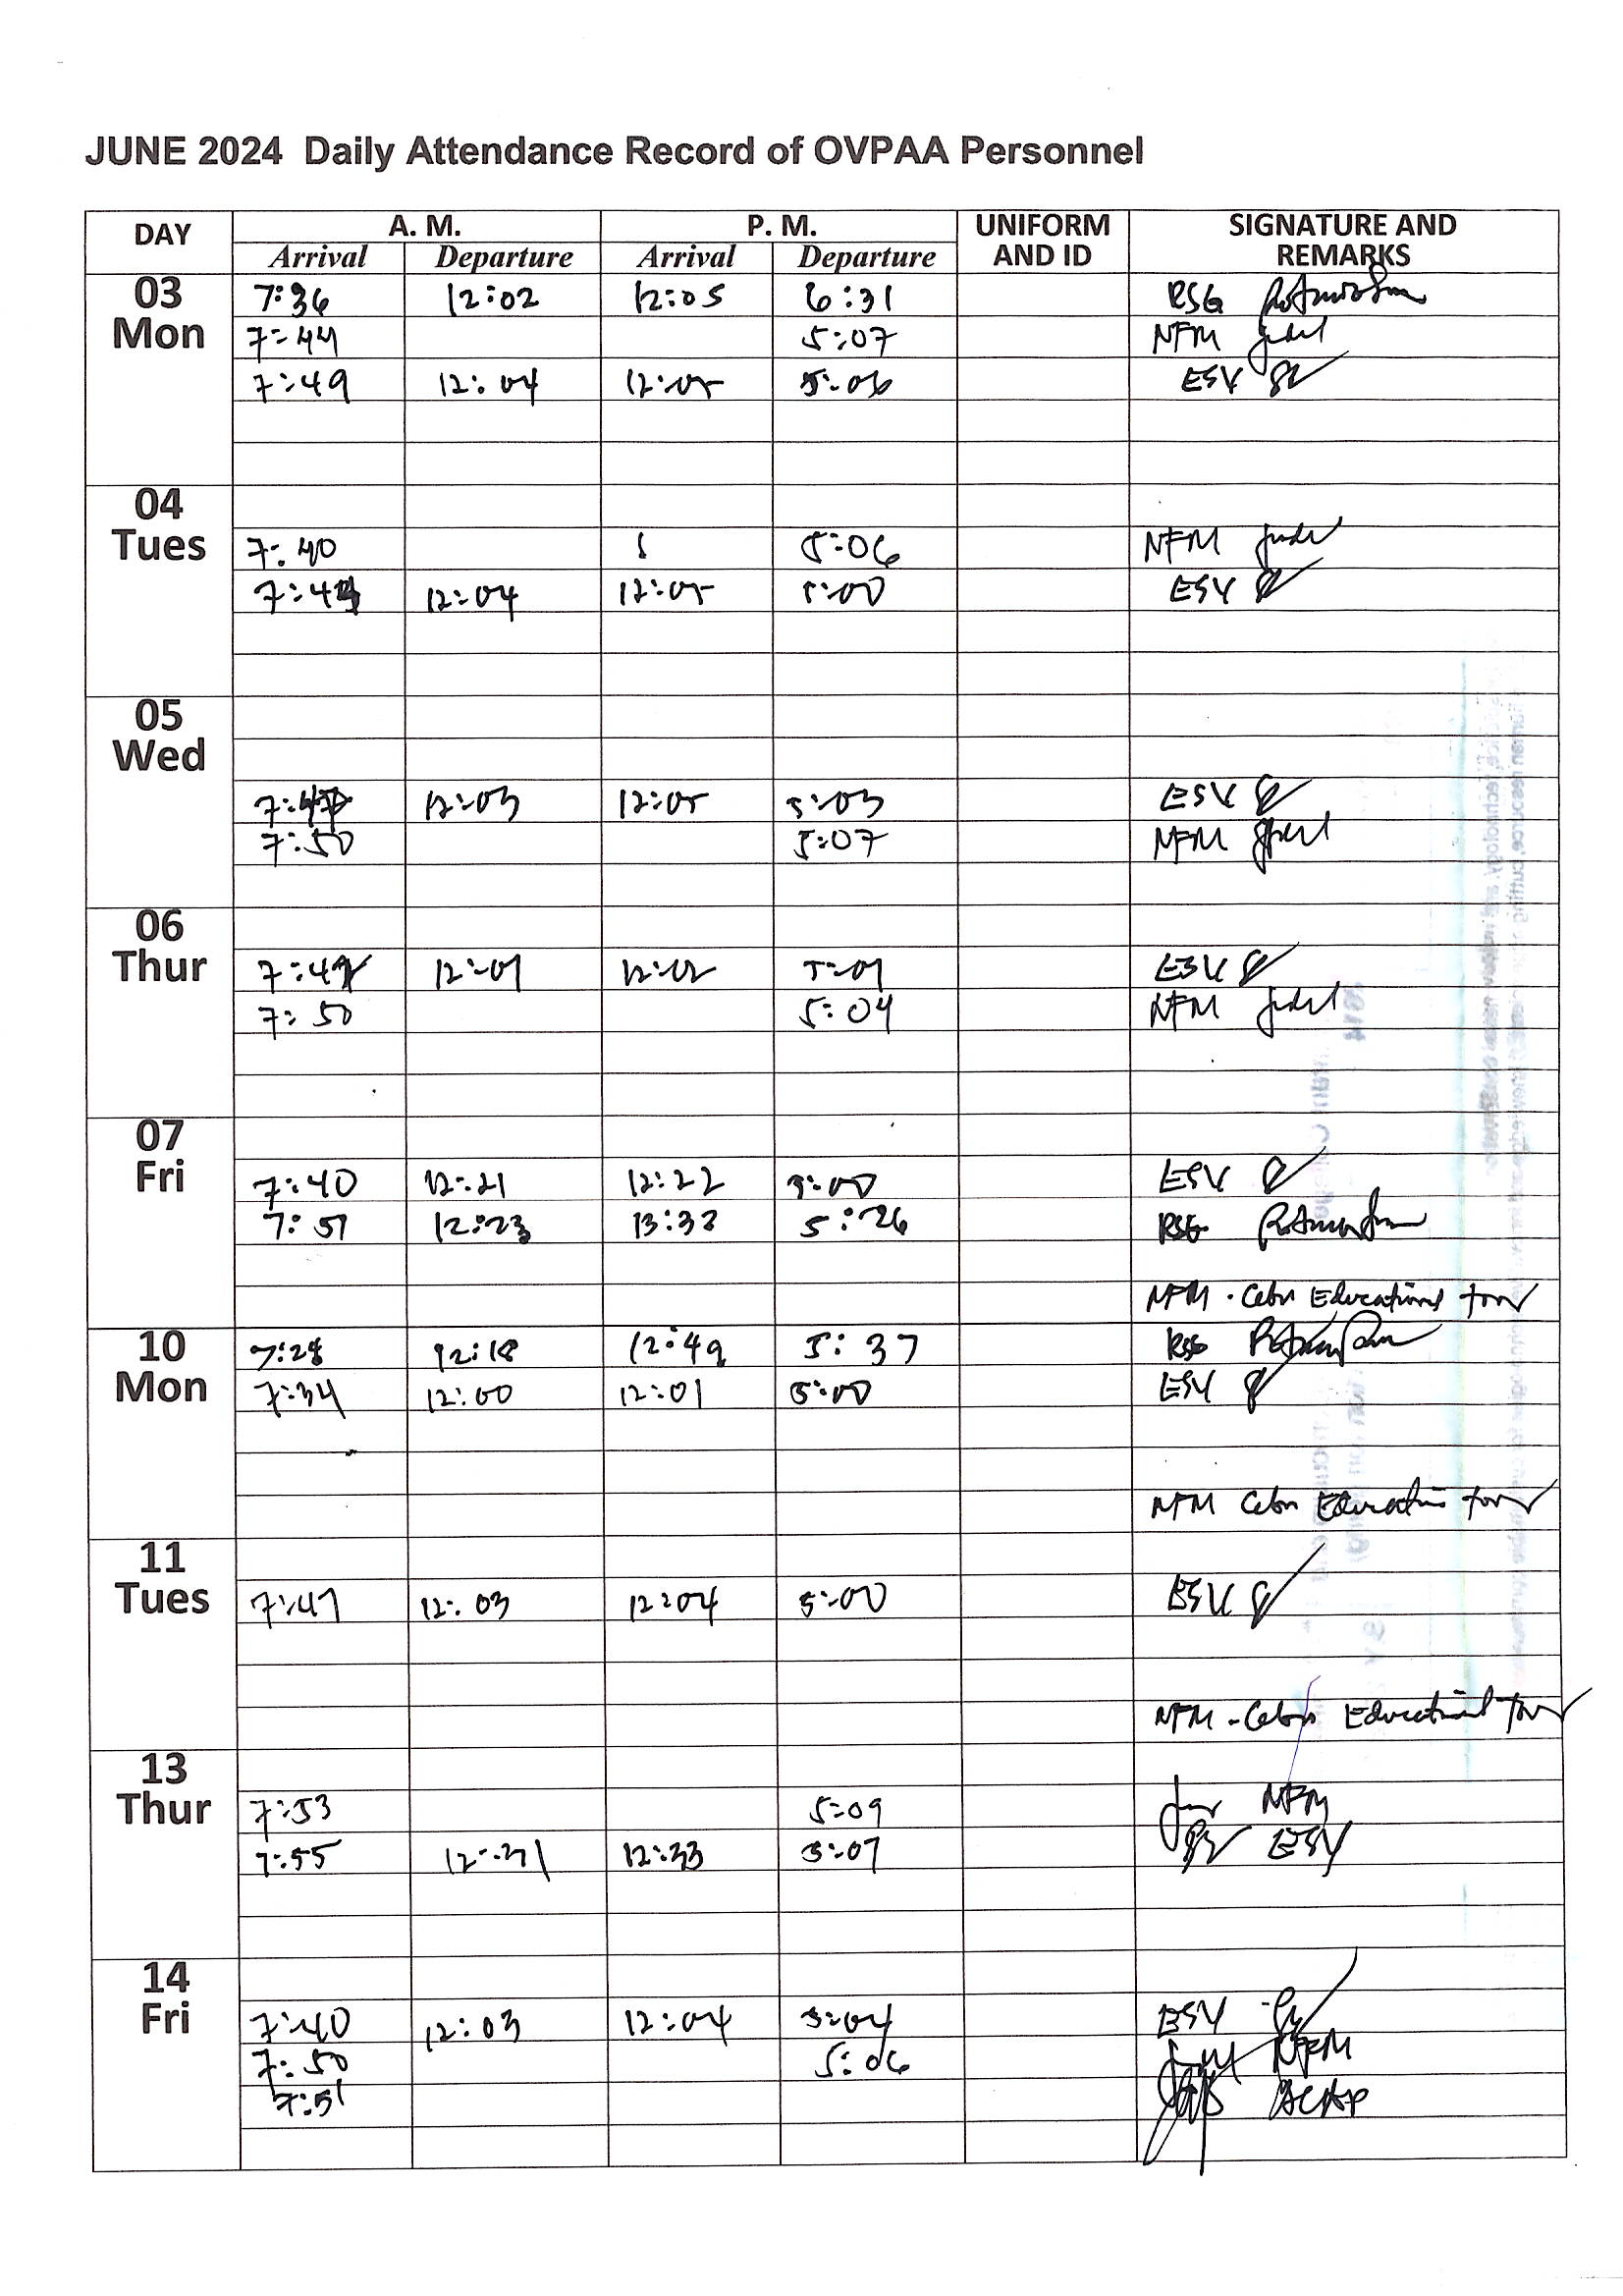 JUNE 2024 Daily Attendance Record of OVPAA Personnel
DAY A. M. P. M. UNIFORM AND ID SIGNATURE AND REMARKS
Arrival Departure Arrival Departure
03 Mon
7:36 12:02 12:05 6:31 RSG
7:44 5:07 NFM
7:49 12:04 12:05 5:06 ESV
04 Tues
7:40 5:06 NFM
12:04 12:05 5:00 ESV
05 Wed
12:03 12:05 5:03 ESV
7:50 5:07 NFM
06 Thur
12:01 12:02 5:01 ESV
7:50 5:04 NFM
07 Fri
7:40 12:21 12:22 5:00 ESV
7:51 12:23 13:33 5:26 RSG
NFM - Cebu Educational tour
10 Mon
7:28 12:18 12:49 5:37 RSG
7:34 12:00 12:01 5:00 ESV
NFM Cebu Education tour
11 Tues
7:47 12:03 12:04 5:00 ESV
NFM - Cebu Educational tour
13 Thur
7:53 5:09 NFM
7:55 12:31 12:33 5:07 ESV
14 Fri
7:40 12:03 12:04 5:04 ESV
7:50 5:06 NFM
7:51